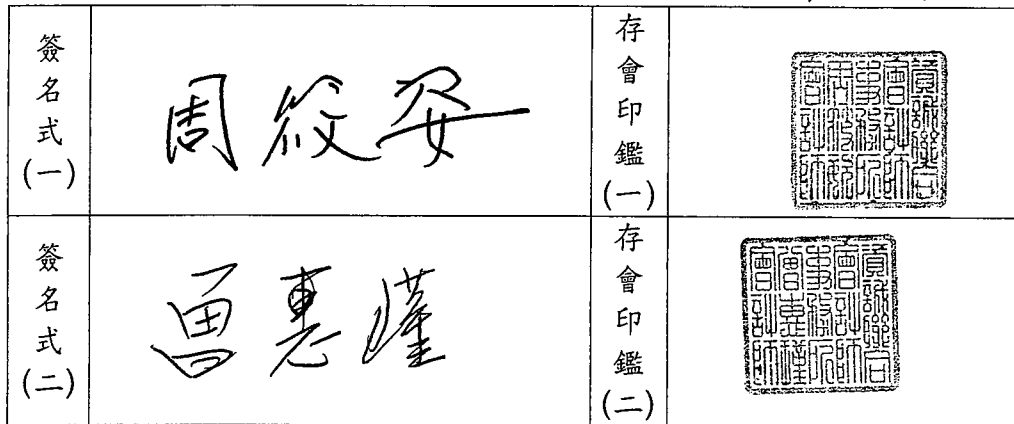 簽名式(一)
周筱姿
存會印鑑(一)
資誠聯合會計師事務所周筱姿會計師
簽名式(二)
曾惠瑾
存會印鑑(二)
資誠聯合會計師事務所曾惠瑾會計師